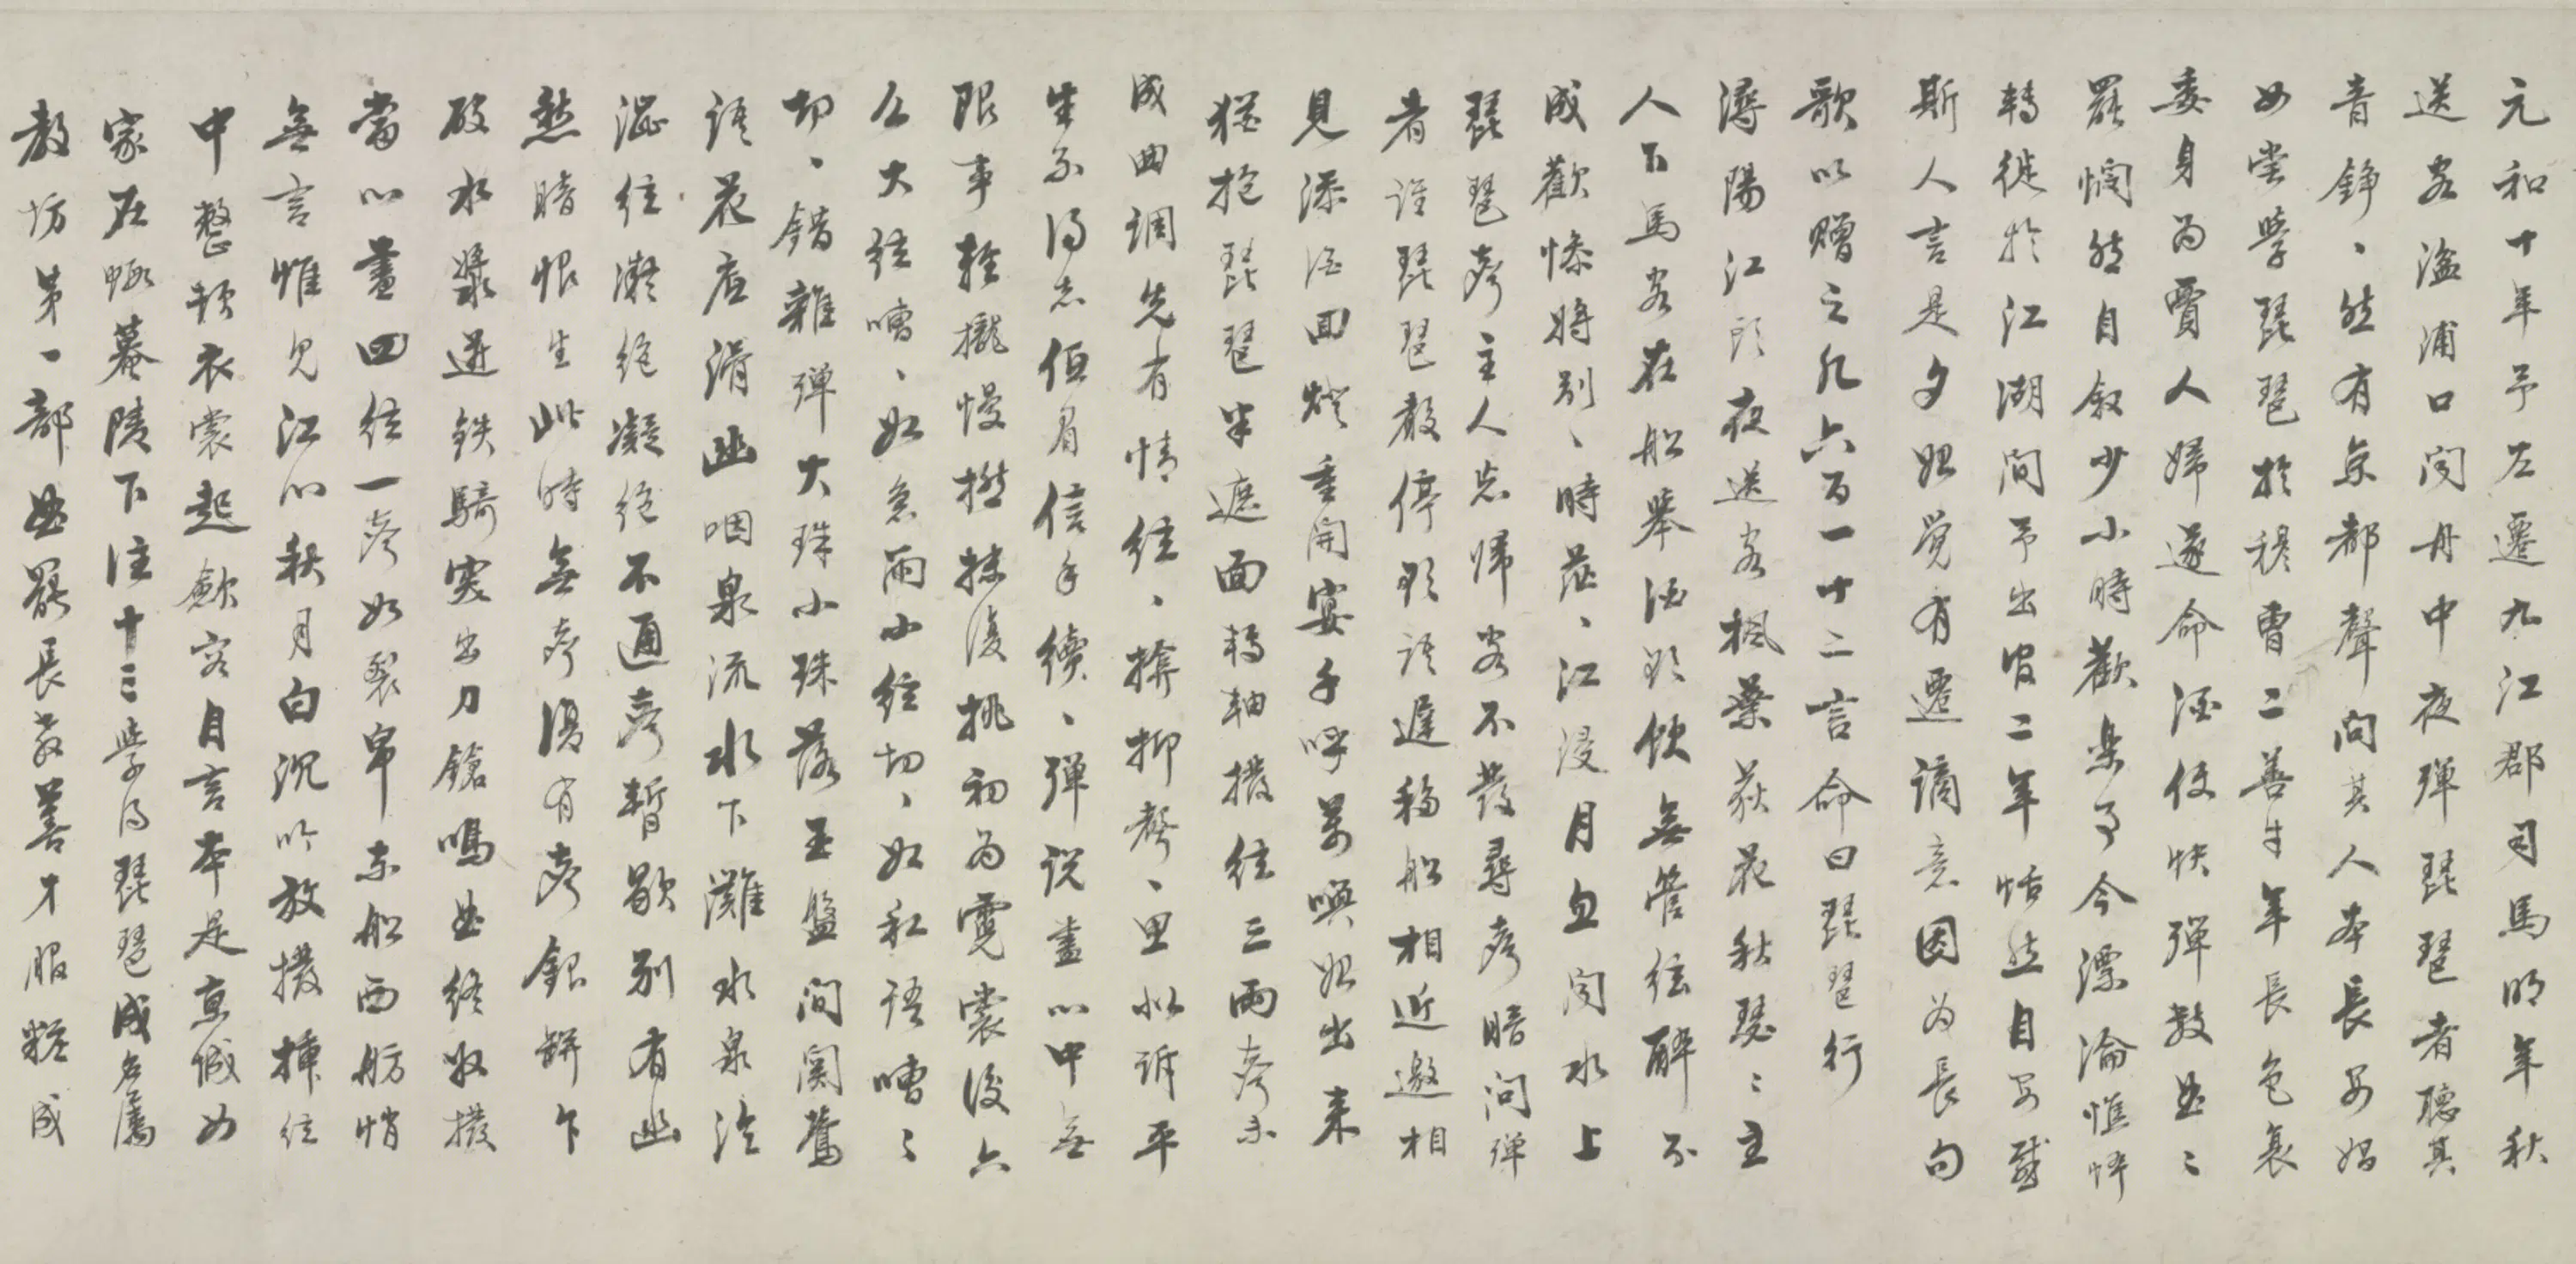 元和十年予左遷九江郡司馬明年秋
送客湓浦口聞舟中夜彈琵琶者聽其
音錚、然有京都聲問其人本長安娼
女嘗學琵琶於穆曹二善才年長色衰
委身為賈人婦遂命酒使快彈數曲〻
罷憫然自叙少小時歡樂事今漂淪憔悴
轉徙於江湖間予出官二年恬然自安感
斯人言是夕始覺有遷謫意因為長句
歌以贈之凡六百一十二言命曰琵琶行
潯陽江頭夜送客楓葉荻花秋瑟〻主
人下馬客在船舉酒欲飲無管絃醉不
成歡慘將別、時茫、江浸月忽聞水上
琵琶聲主人忘歸客不發尋聲暗問彈
者誰琵琶聲停欲語遲移船相近邀相
見添酒回燈重開宴千呼萬喚始出來
猶抱琵琶半遮面轉軸撥絃三兩聲未
成曲調先有情絃、揜抑聲、思似訴平
生不得志低眉信手續、彈說盡心中無
限事輕攏慢撚抹復挑初為霓裳後六
么大絃嘈、如急雨小絃切、如私語嘈〻
切、錯雜彈大珠小珠落玉盤間關鶯
語花底滑幽咽泉流水下灘水泉冷
澀絃凝絕凝絕不通聲暫歇別有幽
愁暗恨生此時無聲復有聲銀缾乍
破水漿迸鐵騎突出刀鎗鳴曲終收撥
當心畫四絃一聲如裂帛東船西舫悄
無言惟見江心秋月白沉吟放撥插絃
中整頓衣裳起斂容自言本是京城女
家在蝦蟇陵下住十三學得琵琶成名屬
教坊第一部曲罷長教善才服粧成